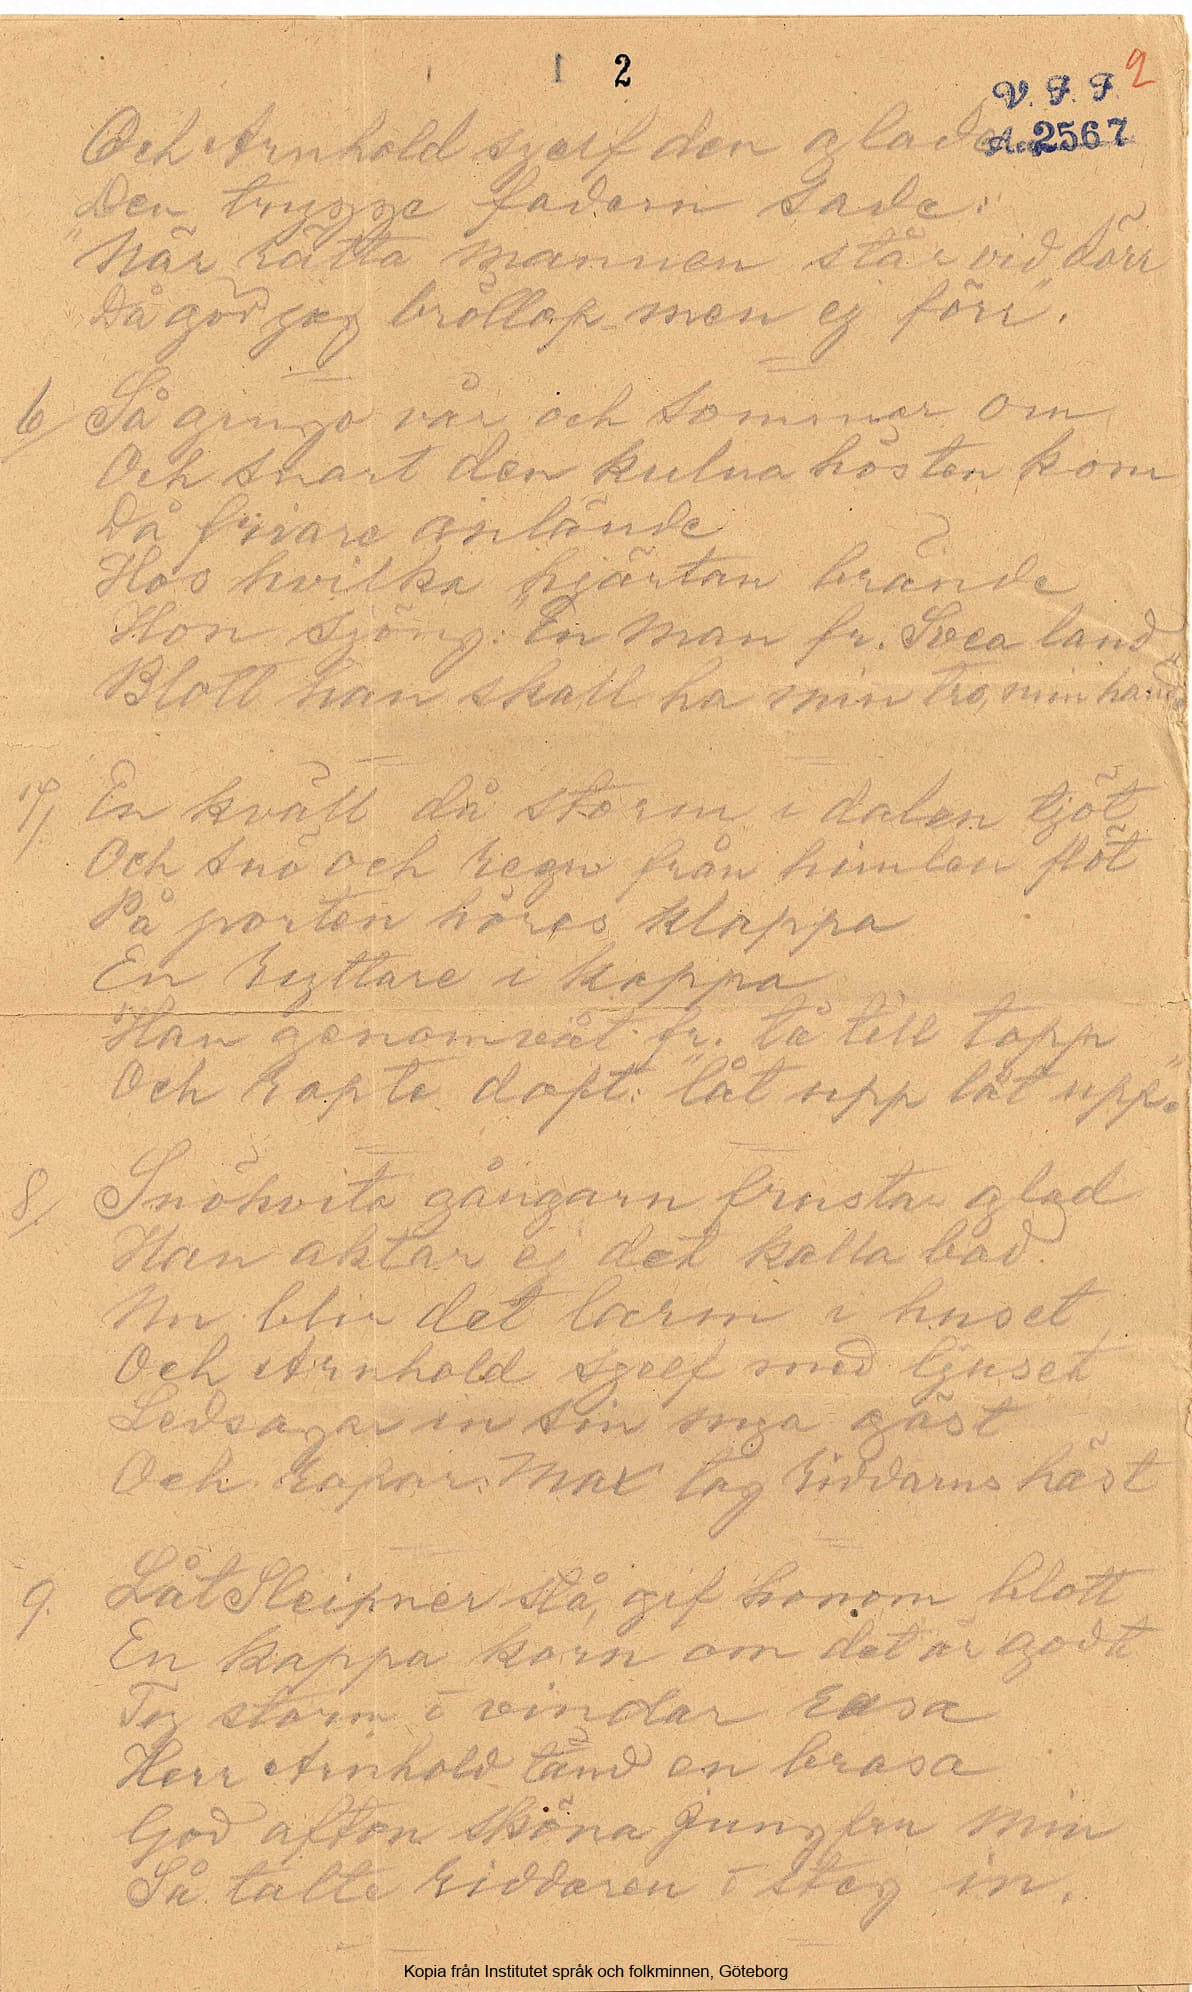 2
2
V. F. F.
Acc. 2567
Och Arnhold sjelf den glade
Den trygge fadern sade:
"När rätta mannen står vid dörr
Då gör jag bröllop men ej förr".
6/ Så gingo vår och sommar om
Och snart den kulna hösten kom
Då friare anlände
Hos hvilka hjärtan brände
Hon sjöng: "En man fr. Svea land
Blott han skall ha min tro, min hand"
7/ En kväll då storm i dalen tjöt
Och snö och regn från himlen flöt
På porten höres klappa
En ryttare i kappa
Han genomvåt fr. tå till topp
Och ropte doft: "låt upp låt upp".
8/ Snöhvita gångarn frustar glad
Han aktar ej det kalla bad.
Nu blir det larm i huset
Och Arnhold sjelf med ljuset
Ledsagar in sin nya gäst
Och ropar: Max tag riddarns häst
9. Låt Sleipner stå, gif honom blott
En kappa korn om det är godt
Ty storm o vindar rasa
Herr Arnhold tänd en brasa
God afton sköna jungfru min
Så talte riddaren o steg in.
Kopia från Institutet språk och folkminnen, Göteborg